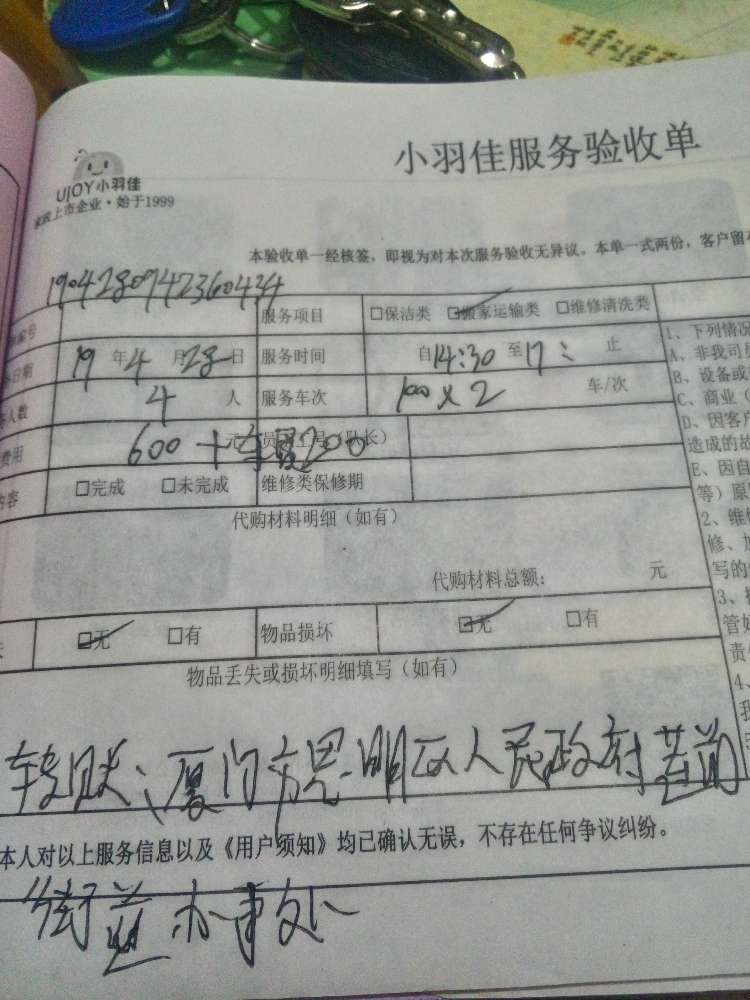 小羽佳服务验收单
UJOY小羽佳
家政上市企业·始于1999
本验收单一经核签，即视为对本次服务验收无异议。本单一式两份，客户留
1904280942360434
编号 服务项目 □保洁类 ☑搬家运输类 □维修清洗类
日期 19年4月28日 服务时间 自14:30至17: 止
人数 4人 服务车次 100×2 车/次
费用 600+车费200 元 员工工号（队长）
内容 □完成 □未完成 维修类保修期
代购材料明细（如有）
代购材料总额： 元
失 ☑无 □有 物品损坏 ☑无 □有
物品丢失或损坏明细填写（如有）
转账：厦门市思明区人民政府莲前
本人对以上服务信息以及《用户须知》均已确认无误，不存在任何争议纠纷。
街道办事处
1、下列情况
A、非我司
B、设备或
C、商业（
D、因客户
造成的故
E、因自
等）原
2、维
修、加
写的
3、
管好
责
4、
我